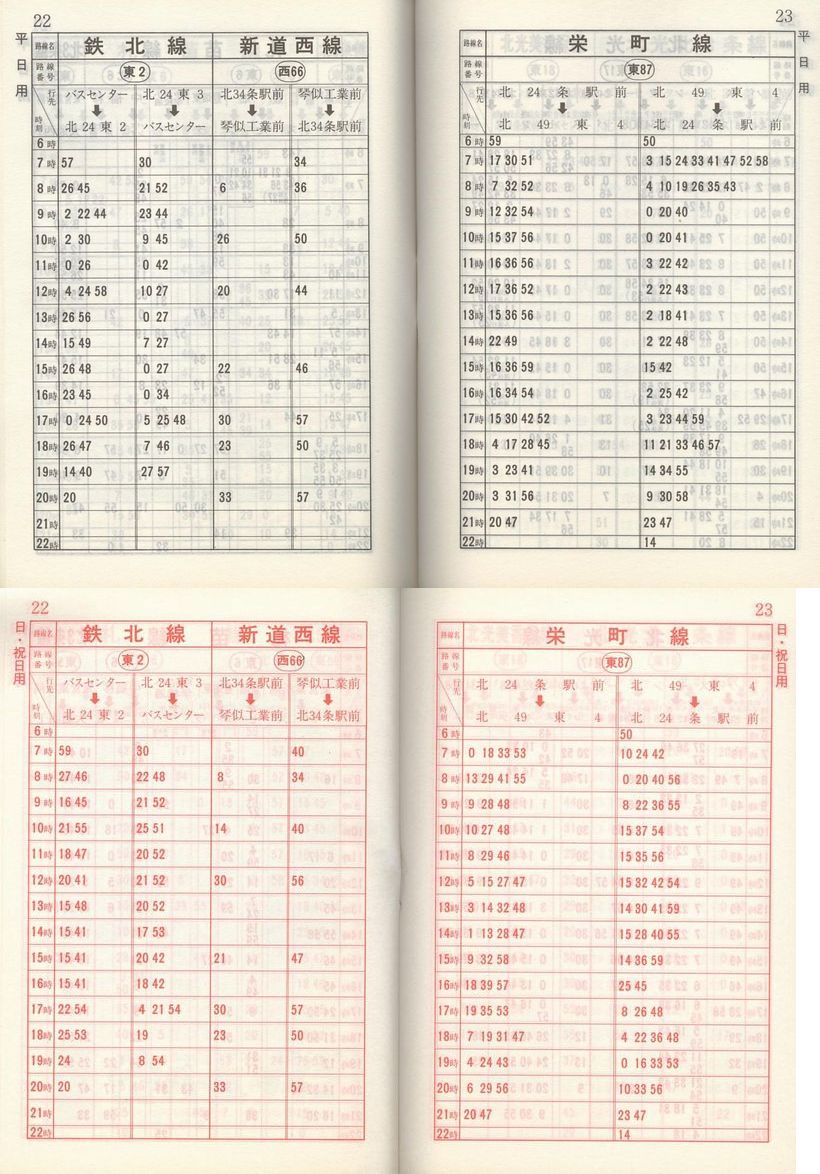 22
平日用
路線名 鉄北線 新道西線
路線番号 東2 西66
行先 バスセンター 北24東3 北34条駅前 琴似工業前
時刻 北24東2 バスセンター 琴似工業前 北34条駅前
6時
7時 57 30 34
8時 26 45 21 52 6 36
9時 2 22 44 23 44
10時 2 30 9 45 26 50
11時 0 26 0 42
12時 4 24 58 10 27 20 44
13時 26 56 0 27
14時 15 49 7 27
15時 26 48 0 27 22 46
16時 23 45 0 34
17時 0 24 50 5 25 48 30 57
18時 26 47 7 46 23 50
19時 14 40 27 57
20時 20 33 57
21時
22時
23
平日用
路線名 栄町線
路線番号 東87
行先 北24条駅前 北49東4
時刻 北49東4 北24条駅前
6時 59 50
7時 17 30 51 3 15 24 33 41 47 52 58
8時 7 32 52 4 10 19 26 35 43
9時 12 32 54 0 20 40
10時 15 37 56 0 20 41
11時 16 36 56 3 22 42
12時 17 36 52 2 22 43
13時 15 36 56 2 18 41
14時 22 49 2 22 48
15時 16 36 59 15 42
16時 16 34 54 2 25 42
17時 15 30 42 52 3 23 44 59
18時 4 17 28 45 11 21 33 46 57
19時 3 23 41 14 34 55
20時 3 31 56 9 30 58
21時 20 47 23 47
22時 14
22
日・祝日用
路線名 鉄北線 新道西線
路線番号 東2 西66
行先 バスセンター 北24東3 北34条駅前 琴似工業前
時刻 北24東2 バスセンター 琴似工業前 北34条駅前
6時
7時 59 30 40
8時 27 46 22 48 8 34
9時 16 45 21 52
10時 21 55 25 51 14 40
11時 18 47 20 52
12時 20 41 21 52 30 56
13時 15 48 20 52
14時 15 41 17 53
15時 15 41 20 42 21 47
16時 15 41 18 42
17時 22 54 4 21 54 30 57
18時 25 53 19 23 50
19時 24 8 54
20時 20 33 57
21時
22時
23
日・祝日用
路線名 栄町線
路線番号 東87
行先 北24条駅前 北49東4
時刻 北49東4 北24条駅前
6時 50
7時 0 18 33 53 10 24 42
8時 13 29 41 55 0 20 40 56
9時 9 28 48 8 22 36 55
10時 10 27 48 15 37 54
11時 8 29 46 15 35 56
12時 5 15 27 47 15 32 42 54
13時 3 14 32 48 14 30 41 59
14時 1 13 28 47 15 28 40 55
15時 9 32 58 14 36 59
16時 18 39 57 25 45
17時 19 35 53 8 26 48
18時 7 19 31 47 4 22 36 48
19時 4 24 43 0 16 33 53
20時 6 29 56 10 33 56
21時 20 47 23 47
22時 14